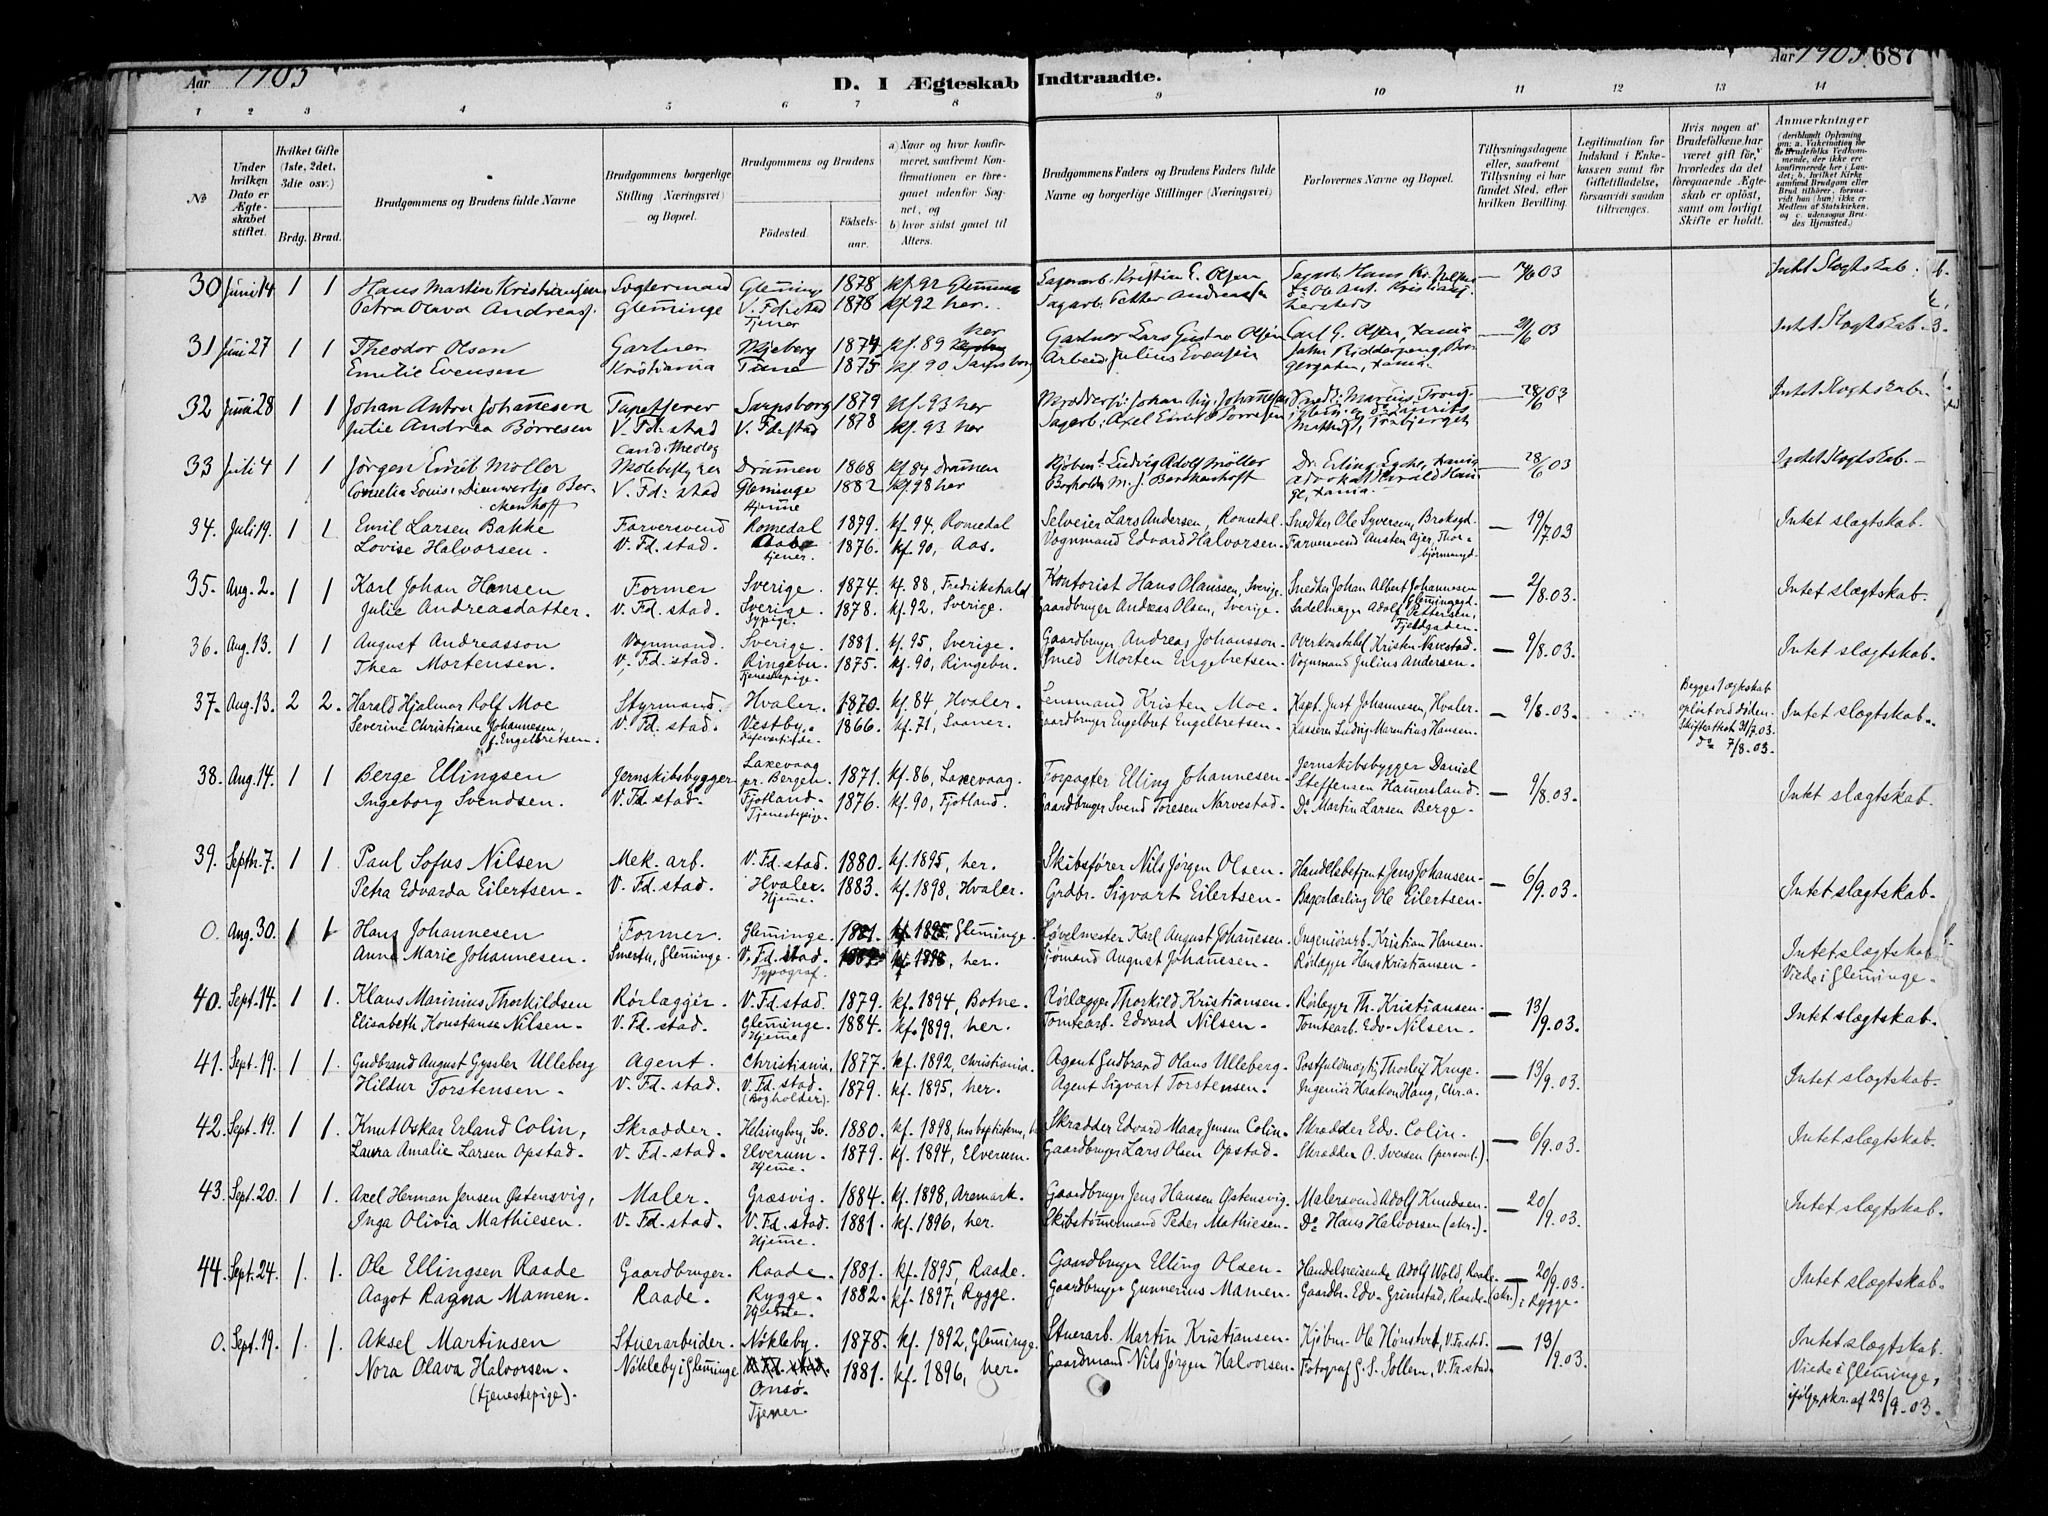 Aar 1903
D. I Ægteskab Indtraadte.
Aar 1903. 687
1 2 3 4 5 6 7 8 9 10 11 12 13 14
No
Under hvilken Dato er Ægteskabet stiftet.
Hvilket Gifte (1ste, 2det, 3die osv.)
Brdg. Brud.
Brudgommens og Brudens fulde Navne
Brudgommens borgerlige Stilling (Næringsvei) og Bopæl.
Brudgommens og Brudens
Födested.
Födselsaar.
a) Naar og hvor konfirmeret, saafremt Konfirmationen er foregaaet udenfor Sognet, og
b) hvor sidst gaaet til Alters.
Brudgommens Faders og Brudens Faders fulde Navne og borgerlige Stillinger (Næringsvei)
Forlovernes Navne og Bopæl.
Tillysningsdagene eller, saafremt Tillysning ei har fundet Sted, efter hvilken Bevilling.
Legitimation for Indskud i Enkekassen samt for Giftetilladelse, forsaavidt saadan tiltrænges.
Hvis nogen af Brudefolkene har været gift för, hvorledes da det foregaaende Ægteskab er oplöst, samt om lovligt Skifte er holdt.
Anmærkninger
(deriblandt Oplysning om: a. Vakcination for de Brudefolks Vedkommende, der ikke ere konfirmerede her i Landet; b. hvilket Kirkesamfund Brudgom eller Brud tilhörer, forsaavidt han (hun) ikke er Medlem af Statskirken, og c. udensogns Brudes Hjemsted.)
30 Juni 14 1 1 Hans Martin Kristiansen Glemminge 1878 kf. 92 Glemminge Sagarb. Kristian E. Olsen 14/6 03 Intet Slægtskab.
Petra Olava Andreas. Glemminge V. Fd.stad 1878 kf. 92 her. Sagarb. Petter Andreassen
Tjener
31 Juni 27 1 1 Theodor Olsen Gartner Skjeberg 1874 kf. 89 her Gartner Lars Gustav Olsen Carl G. Olsen, Xania 21/6 03 Intet Slægtskab.
Emilie Evensen Kristiania Tune 1875 kf. 90 Sarpsborg Arbeid. Julius Evensen
32 Juni 28 1 1 Johan Anton Johannesen Tapetserer Sarpsborg 1879 kf. 93 her 28/6 03 Intet Slægtskab.
Julie Andrea Børresen V. Fd. stad V. Fd.stad 1878 kf. 93 her
cand. theolog
33 Juli 4 1 1 Jørgen Emil Møller Skolebestyrer Drammen 1868 kf. 84 Drammen Kjøbmd. Ludvig Adolf Møller 28/6 03 Intet Slægtskab.
V. Fd. stad Glemminge 1882 kf. 98 her
Hjemme
34. Juli 19. 1 1 Emil Larsen Bakke Farversvend Romedal 1879. kf. 94. Romedal Selveier Lars Andersen, Romedal. Snedker Ole Syversen, Broksgd. 19/7 03 Intet slægtskab.
Lovise Halvorsen. V. Fd. stad. Aas 1876. kf. 90, Aas. Vognmand Edvard Halvorsen. Farversvend Austen Ajer, Thorbjørnsengd.
tjener.
35. Aug. 2. 1 1 Karl Johan Hansen Former Sverige. 1874. kf. 88, Fredrikshald Kontorist Hans Olaussen, Sverige. Snedker Johan Albert Johannesen 2/8. 03. Intet slægtskab.
Julie Andreasdatter. V. Fd. stad. Sverige. 1878. kf. 92, Sverige. Gaardbruger Andreas Olsen, Sverige. Sadelmager Adolf Pettersen,
Sypige. Fjeldgaden.
36. Aug. 13. 1 1 August Andreasson Vognmand. Sverige. 1881. kf. 95, Sverige. Gaardbruger Andreas Johansson. Overkonstabel Kristen Navestad. 9/8. 03. Intet slægtskab.
Thea Mortensen. V. Fd. stad. Ringebu. 1875. kf. 90, Ringebu. Smed Morten Engebretsen. Vognmand Julius Andersen.
Tjenestepige.
37. Aug. 13. 2 2. Harald Hjalmar Rolf Moe Styrmand. Hvaler. 1870. kf. 84, Hvaler. Lensmand Kristen Moe. Kapt. Just Johannesen, Hvaler. 9/8. 03. Intet slægtskab.
Severine Christiane Johannesen, f. Engelbretsen. V. Fd. stad. Vestby. 1866. kf. 71, Saaner. Gaardbruger Engelbret Engelbretsen. Kasserer Ludvig Marentius Hansen.
Begges 1. ægtskab opløst ved døden. Skifteattest 31/7. 03. do 7/8. 03.
38. Aug. 14. 1 1 Berge Ellingsen Jernskibsbygger Laxevaag pr. Bergen. 1871. kf. 86, Laxevaag. Forpagter Elling Johannesen. Jernskibsbygger Daniel Steffensen Hamersland. 9/8. 03. Intet slægtskab.
Ingeborg Svendsen. V. Fd. stad. Fjotland. 1876. kf. 90, Fjotland. Gaardbruger Svend Toresen Narvestad. Do Martin Larsen Berge.
Tjenestepige.
39. Septbr. 7. 1 1. Paul Sofus Nilsen Mek. arb. V. Fd. stad. 1880. kf. 1895, her. Skibsfører Nils Jørgen Olsen. Handelsbetjent Jens Johansen. 6/9. 03. Intet slægtskab.
Petra Edvarda Eilertsen. V. Fd. stad. Hvaler. 1883. kf. 1898, Hvaler. Grdbr. Sigvart Eilertsen. Bagerlærling Ole Eilertsen.
Hjemme.
0. Aug. 30. 1 1 Hans Johannesen Former. Glemminge. 1881. kf. 1895, Glemminge. Høvelmester Karl August Johannesen. Ingeniørarb. Kristian Hansen. Intet slægtskab
Anna Marie Johannesen. Smertu, Glemminge. V. Fd. stad. kf. 1898, her. Sjømand August Johannesen. Rørlægger Hans Kristiansen. Viede i Glemminge.
Typograf.
40. Sept. 14. 1 1. Klaus Marinius Thorkildsen Rørlægger. V. Fd. stad. 1879. kf. 1894, Botne. Rørlægger Thorkild Kristiansen. Rørlægger Th. Kristiansen. 13/9. 03. Intet slægtskab.
Elisabeth Konstanse Nilsen. V. Fd. stad. Glemminge. 1884. kf. 1899. her. Tomtearb. Edvard Nilsen. Tomtearb. Edv. Nilsen.
Hjemme
41. Sept. 19. 1 1. Gudbrand August Gyssler Ulleberg Agent. Christiania. 1877. kf. 1892, Christiania. Agent Gudbrand Olaus Ulleberg. Postfuldmægtig Thorleif Kruge. 13/9. 03. Intet slægtskab.
Hildur Torstensen. V. Fd. stad. V. Fd. stad. 1879. kf. 1895, her. Agent Sigvart Torstensen. Ingeniør Haakon Hang, Chr.a.
(Bogholder).
42. Sept. 19. 1 1. Knut Oskar Erland Colin, Skrædder. Helsingborg, Sv. 1880. kf. 1898, hos baptisterne, Skrædder Edvard Maar Jensen Colin. Skrædder Edv. Colin. 6/9. 03. Intet slægtskab.
Laura Amalie Larsen Opstad. V. Fd. stad. Elverum. 1879. kf. 1894, Elverum. Gaardbruger Lars Olsen Opstad. Skrædder O. Iversen (personl.).
Hjemme.
43. Sept. 20. 1 1. Axel Herman Jensen Østensvig, Maler. Græsvig. 1884. kf. 1898, Aremark. Gaardbruger Jens Hansen Østensvig. Malersvend Adolf Knudsen. 20/9. 03. Intet slægtskab.
Inga Olivia Mathiesen. V. Fd. stad. V. Fd. stad. 1881. kf. 1896, her. Skibstømmermand Peder Mathiesen. Do Hans Halvorsen (skr.).
Hjemme.
44. Sept. 24. 1. 1. Ole Ellingsen Raade Gaardbruger. Raade. 1881. kf. 1895, Raade. Gaardbruger Elling Olsen. Handelsreisende Adolf Wold, Raade. 20/9. 03. Intet slægtskab.
Aagot Ragna Mamen. Raade. Rygge. 1882. kf. 1897, Rygge. Gaardbruger Gunnerius Mamen. Gaardbr. Edv. Grimstad, Raade. (skr.) i Rygge.
Hjemme.
0. Sept. 19. 1. 1. Aksel Martinsen Stuerarbeider. Nøkleby. 1878. kf. 1892, Glemminge. Stuerarb. Martin Kristiansen. Kjøbm. Ole Hønstvet, V. Fr.stad. 13/9. 03. Intet slægtskab.
Nora Olava Halvorsen. Nøkleby i Glemminge 1881. kf. 1896, her. Gaardmand Nils Jørgen Halvorsen. Fotograf G. S. Sollem, V. Fr.stad Viede i Glemminge,
(tjenestepige). Onsø. ifølge skr. af 23/9. 03.
Tjener.